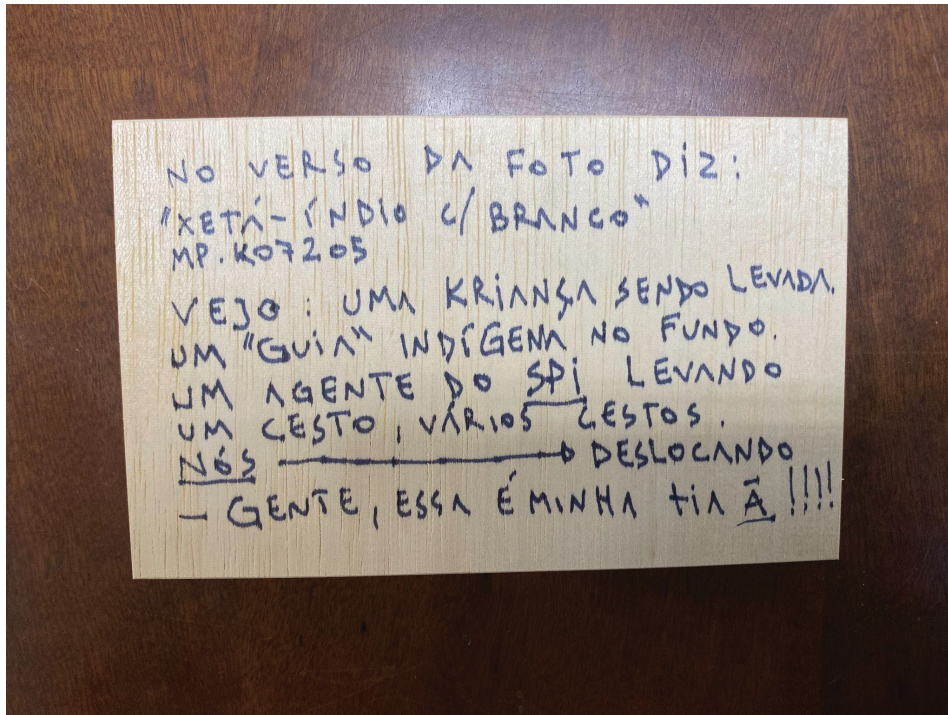 NO VERSO DA FOTO DIZ:
"XETÁ-ÍNDIO C/ BRANCO"
MP.K07205
VEJO: UMA KRIANÇA SENDO LEVADA.
UM "GUIA" INDÍGENA NO FUNDO.
UM AGENTE DO SPI LEVANDO
UM CESTO, VÁRIOS CESTOS.
NÓS → DESLOCANDO
- GENTE, ESSA É MINHA tiA Ã !!!!